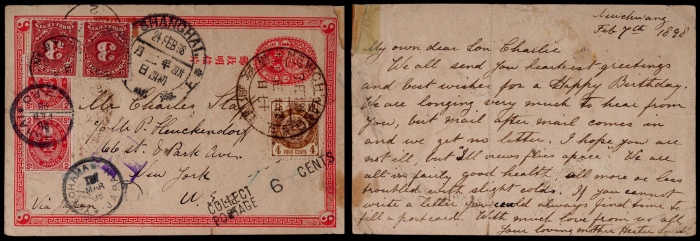 SHANGHAI
24 FEB 98
Mr Charles
c/o W P. Heuckendorf
66 St. & Park Ave
New York
U.S.
Via
4
FOUR CENTS
COLLECT
POSTAGE
6 CENTS
YOKOHAMA
MAR
Newchwang
Feb 7th 1898
My own dear Son Charlie
We all send you dearest greetings
and best wishes for a Happy Birthday.
We are longing very much to hear from
you, but mail after mail comes in
and we get no letter. I hope you are
not ill, but Ill news flies apace. We are
all in fairly good health, all more or less
troubled with slight colds. If you cannot
write a letter you could always find time to
fill a postcard. With much love from us all
Your loving mother